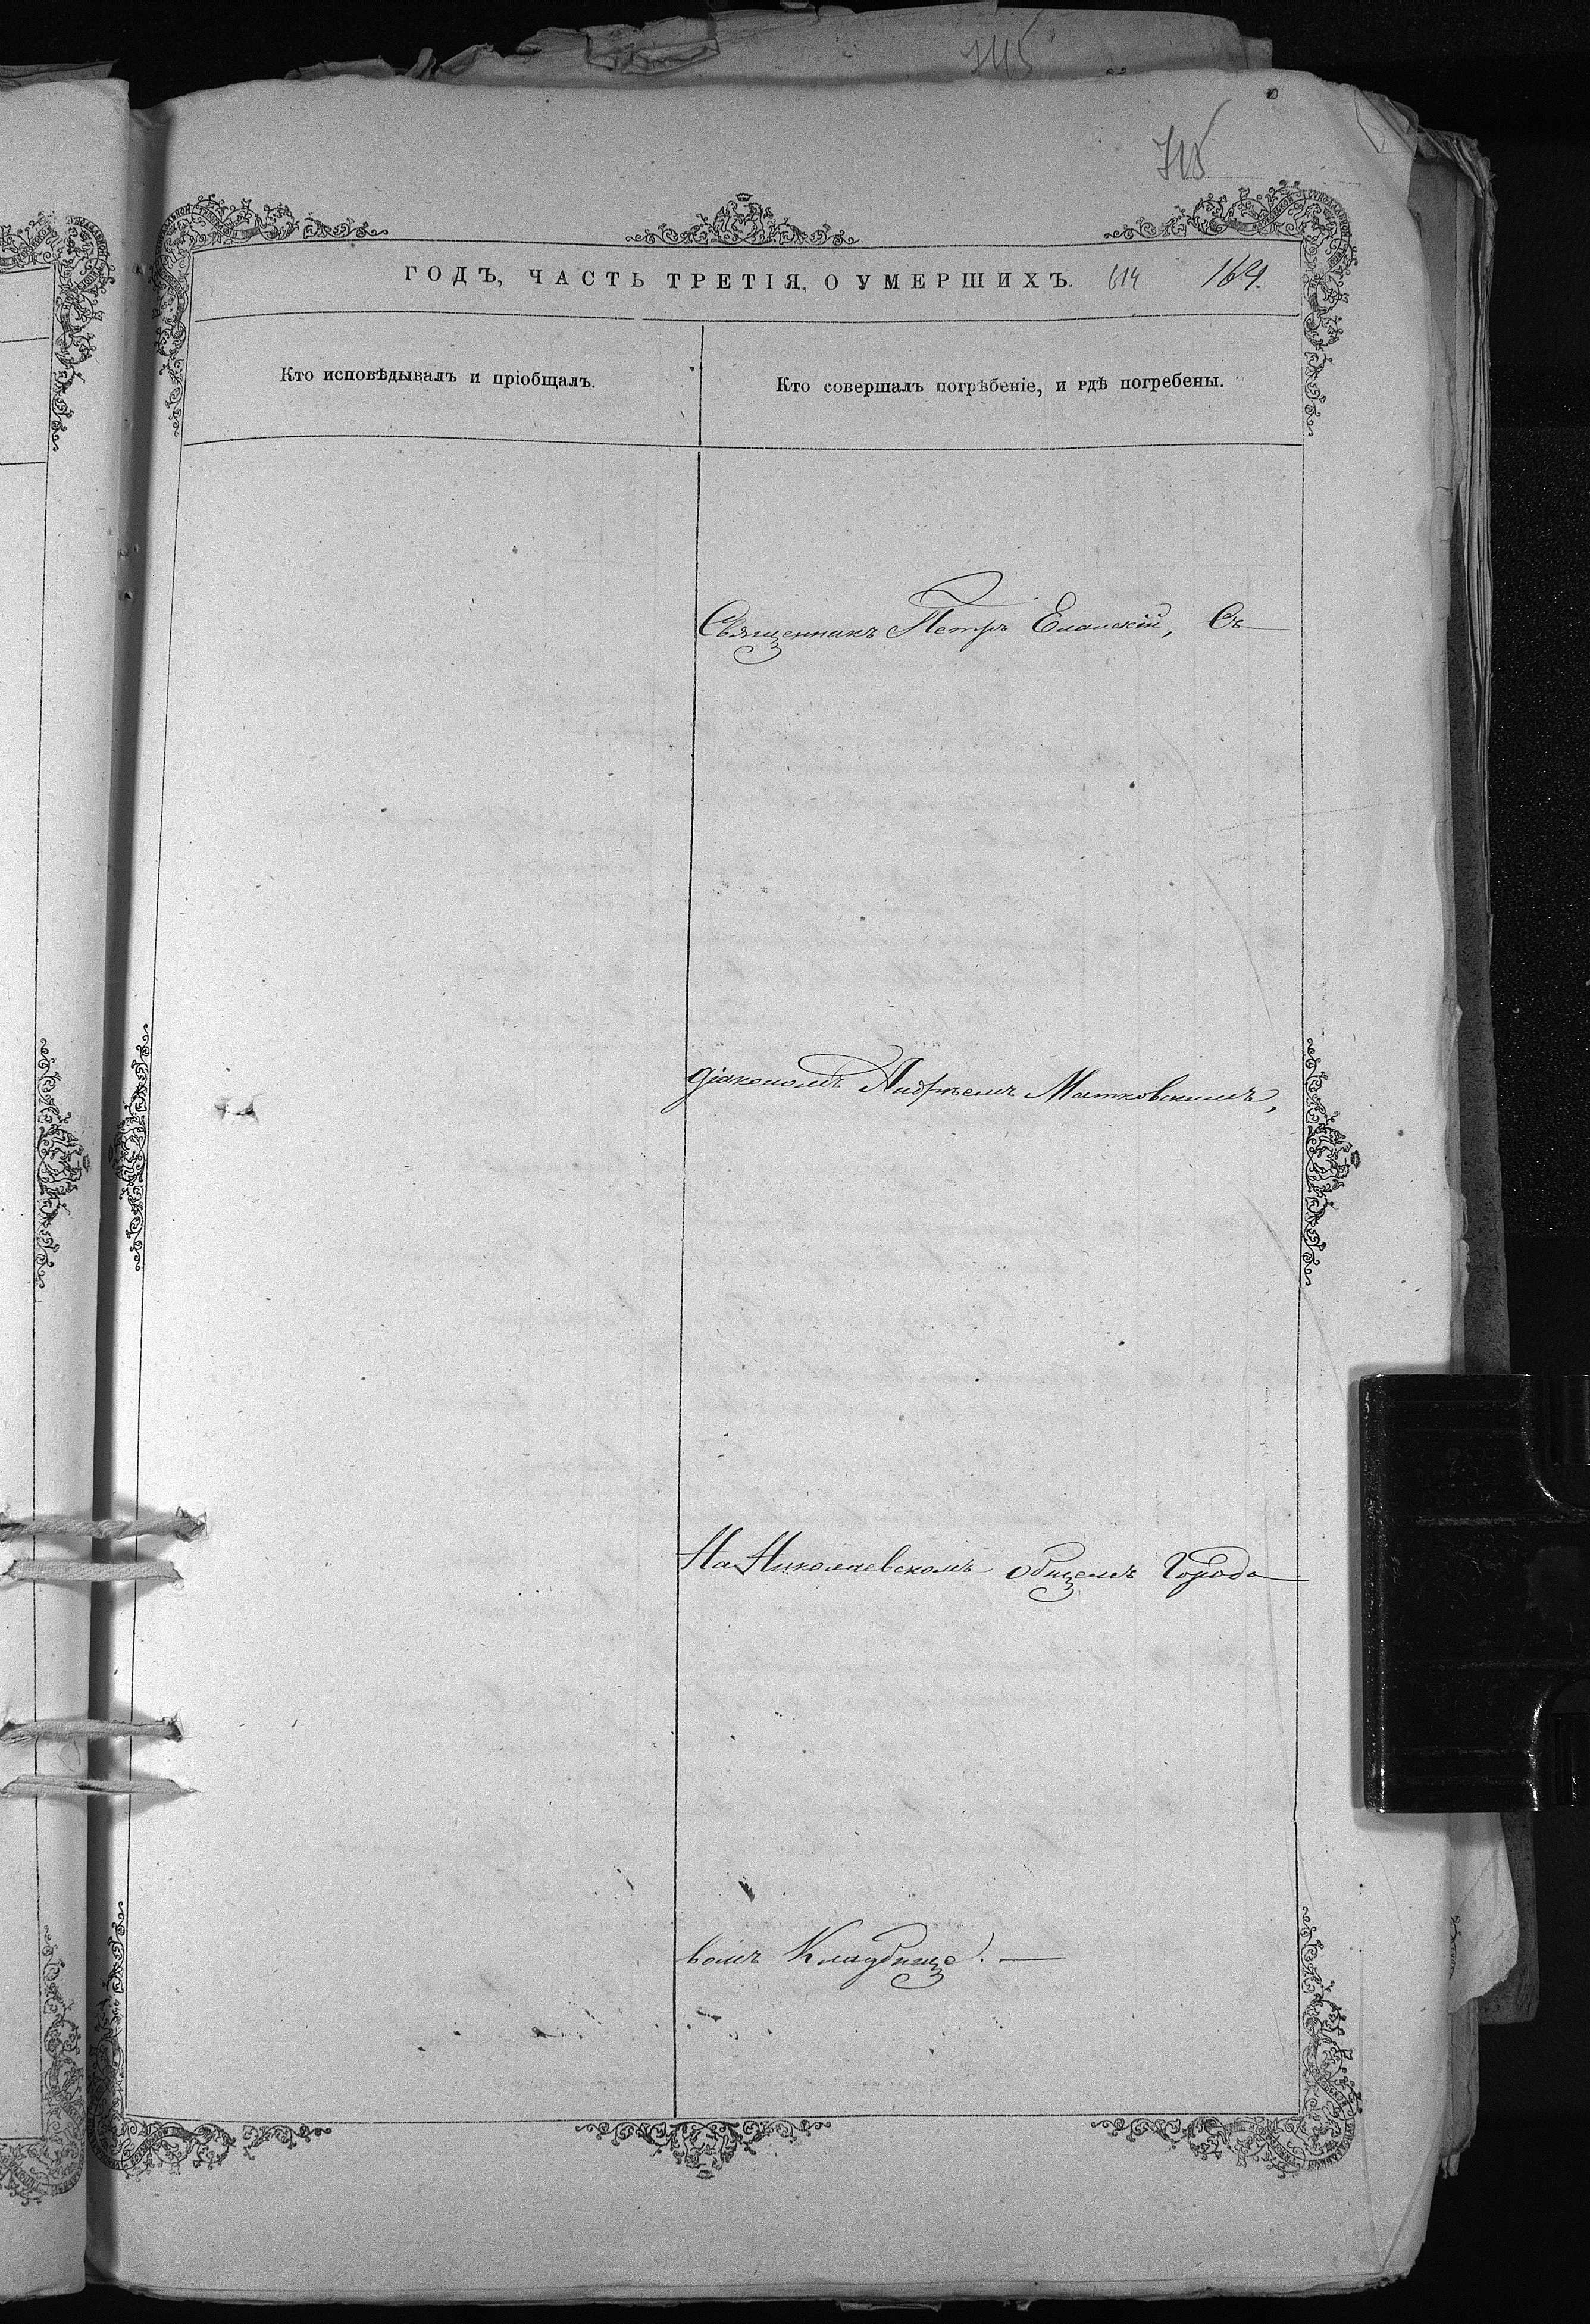 715
ГОДЪ, ЧАСТЬ ТРЕТІЯ, О УМЕРШИХЪ. 614 164.
Кто исповѣдывалъ и пріобщалъ.
Кто совершалъ погрѣбеніе, и гдѣ погребены.
Священникъ Петръ Еланскій, Съ
діакономъ Андреемъ Матковскимъ,
На Николаевскомъ общемъ Городо
вомъ Кладбище. —